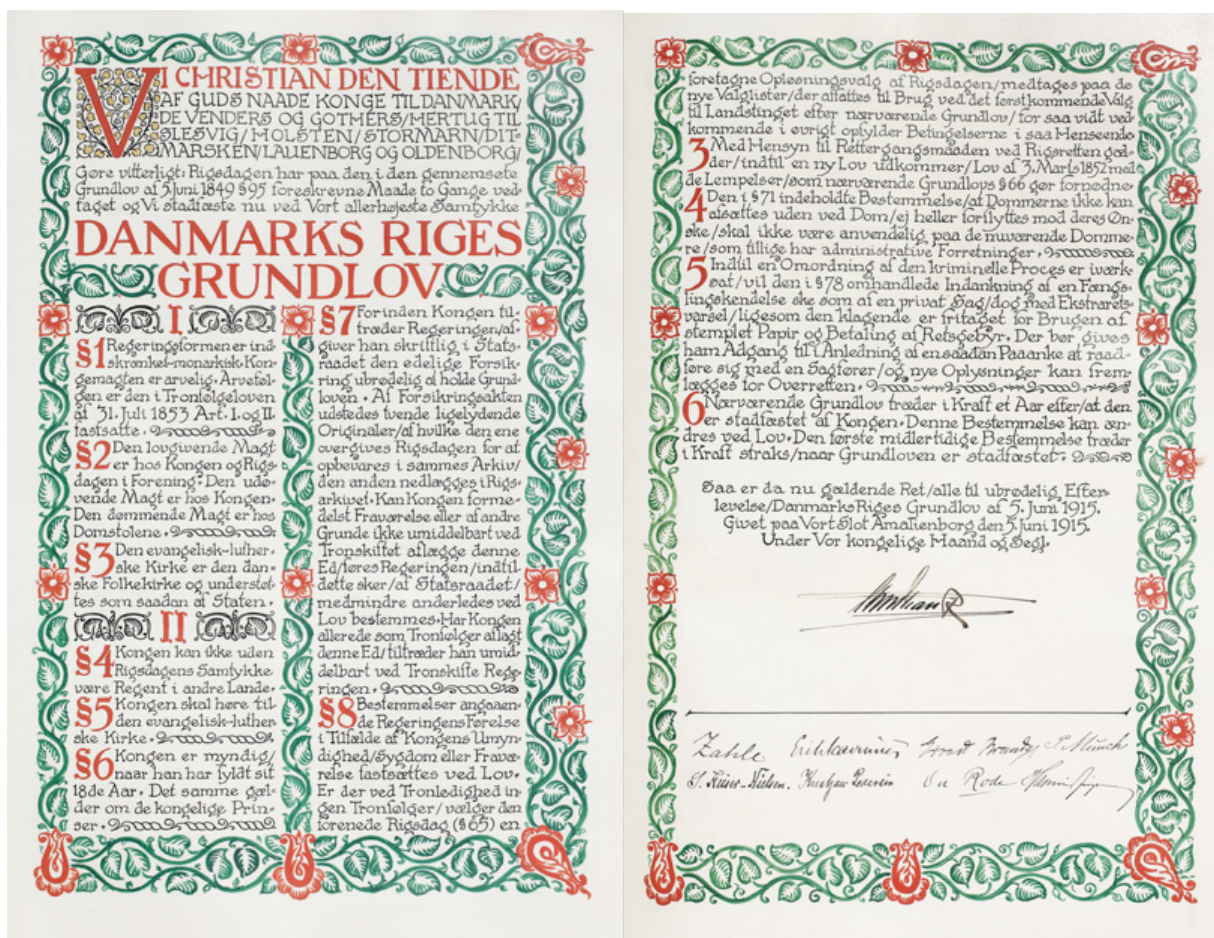 VI CHRISTIAN DEN TIENDE
AF GUDS NAADE KONGE TIL DANMARK/
DE VENDERS OG GOTHERS/HERTUG TIL
SLESVIG/HOLSTEN/STORMARN/DIT-
MARSKEN/LAUENBORG OG OLDENBORG/
Gøre vitterligt: Rigsdagen har paa den i den gennemsete
Grundlov af 5. Juni 1849 §95 foreskrevne Maade to Gange ved-
taget og Vi stadfæste nu ved Vort allerhøjeste Samtykke
DANMARKS RIGES
GRUNDLOV
I
§1 Regeringsformen er ind-
skrænket-monarkisk. Kon-
gemagten er arvelig. Arveføl-
gen er den i Tronfølgeloven
af 31. Juli 1853 Art. I. og II.
fastsatte.
§2 Den lovgivende Magt
er hos Kongen og Rigs-
dagen i Forening. Den udø-
vende Magt er hos Kongen.
Den dømmende Magt er hos
Domstolene.
§3 Den evangelisk-luther-
ske Kirke er den dan-
ske Folkekirke og understøt-
tes som saadan af Staten.
II
§4 Kongen kan ikke uden
Rigsdagens Samtykke
være Regent i andre Lande.
§5 Kongen skal høre til
den evangelisk-luther-
ske Kirke.
§6 Kongen er myndig/
naar han har fyldt sit
18de Aar. Det samme gæl-
der om de kongelige Prin-
ser.
§7 Forinden Kongen til-
træder Regeringen/af-
giver han skriftlig i Stats-
raadet den edelige Forsik-
ring ubrødelig at holde Grund-
loven. Af Forsikringsakten
udstedes tvende ligelydende
Originaler/af hvilke den ene
overgives Rigsdagen for at
opbevares i sammes Arkiv/
den anden nedlægges i Rigs-
arkivet. Kan Kongen forme-
delst Fraværelse eller af andre
Grunde ikke umiddelbart ved
Tronskiftet aflægge denne
Ed/føres Regeringen/indtil
dette sker/af Statsraadet/
medmindre anderledes ved
Lov bestemmes. Har Kongen
allerede som Tronfølger aflagt
denne Ed/tiltræder han umid-
delbart ved Tronskifte Rege-
ringen.
§8 Bestemmelser angaaen-
de Regeringens Førelse
i Tilfælde af Kongens Umyn-
dighed/Sygdom eller Fravæ-
relse fastsættes ved Lov.
Er der ved Tronledighed in-
gen Tronfølger/vælger den
forenede Rigsdag (§65) en
foretagne Opløsningsvalg af Rigsdagen/medtages paa de
nye Valglister/der affattes til Brug ved det førstkommende Valg
til Landstinget efter nærværende Grundlov/for saa vidt ved-
kommende i øvrigt opfylder Betingelserne i saa Henseende.
3 Med Hensyn til Rettergangsmaaden ved Rigsretten gæl-
der/indtil en ny Lov udkommer/Lov af 3. Marts 1852 med
de Lempelser/som nærværende Grundlovs §66 gør fornødne.
4 Den i §71 indeholdte Bestemmelse/at Dommerne ikke kan
afsættes uden ved Dom/ej heller forflyttes mod deres Øn-
ske/skal ikke være anvendelig paa de nuværende Domme-
re/som tillige har administrative Forretninger.
5 Indtil en Omordning af den kriminelle Proces er iværk-
sat/vil den i §78 omhandlede Indankning af en Fængs-
lingskendelse ske som af en privat Sag/dog med Ekstrarets-
varsel/ligesom den klagende er fritaget for Brugen af
stemplet Papir og Betaling af Retsgebyr. Der bør gives
ham Adgang til i Anledning af en saadan Paaanke at raad-
føre sig med en Sagfører/og nye Oplysninger kan frem-
lægges for Overretten.
6 Nærværende Grundlov træder i Kraft et Aar efter/at den
er stadfæstet af Kongen. Denne Bestemmelse kan æn-
dres ved Lov. Den første midlertidige Bestemmelse træder
i Kraft straks/naar Grundloven er stadfæstet.
Saa er da nu gældende Ret/alle til ubrødelig Efter-
levelse/Danmarks Riges Grundlov af 5. Juni 1915.
Givet paa Vort Slot Amalienborg den 5 Juni 1915.
Under Vor kongelige Haand og Segl.
Christian R
Zahle Erik Scavenius Edvard Brandes P. Munch
S. Keiser-Nielsen. Kristjan Pedersen Ove Rode